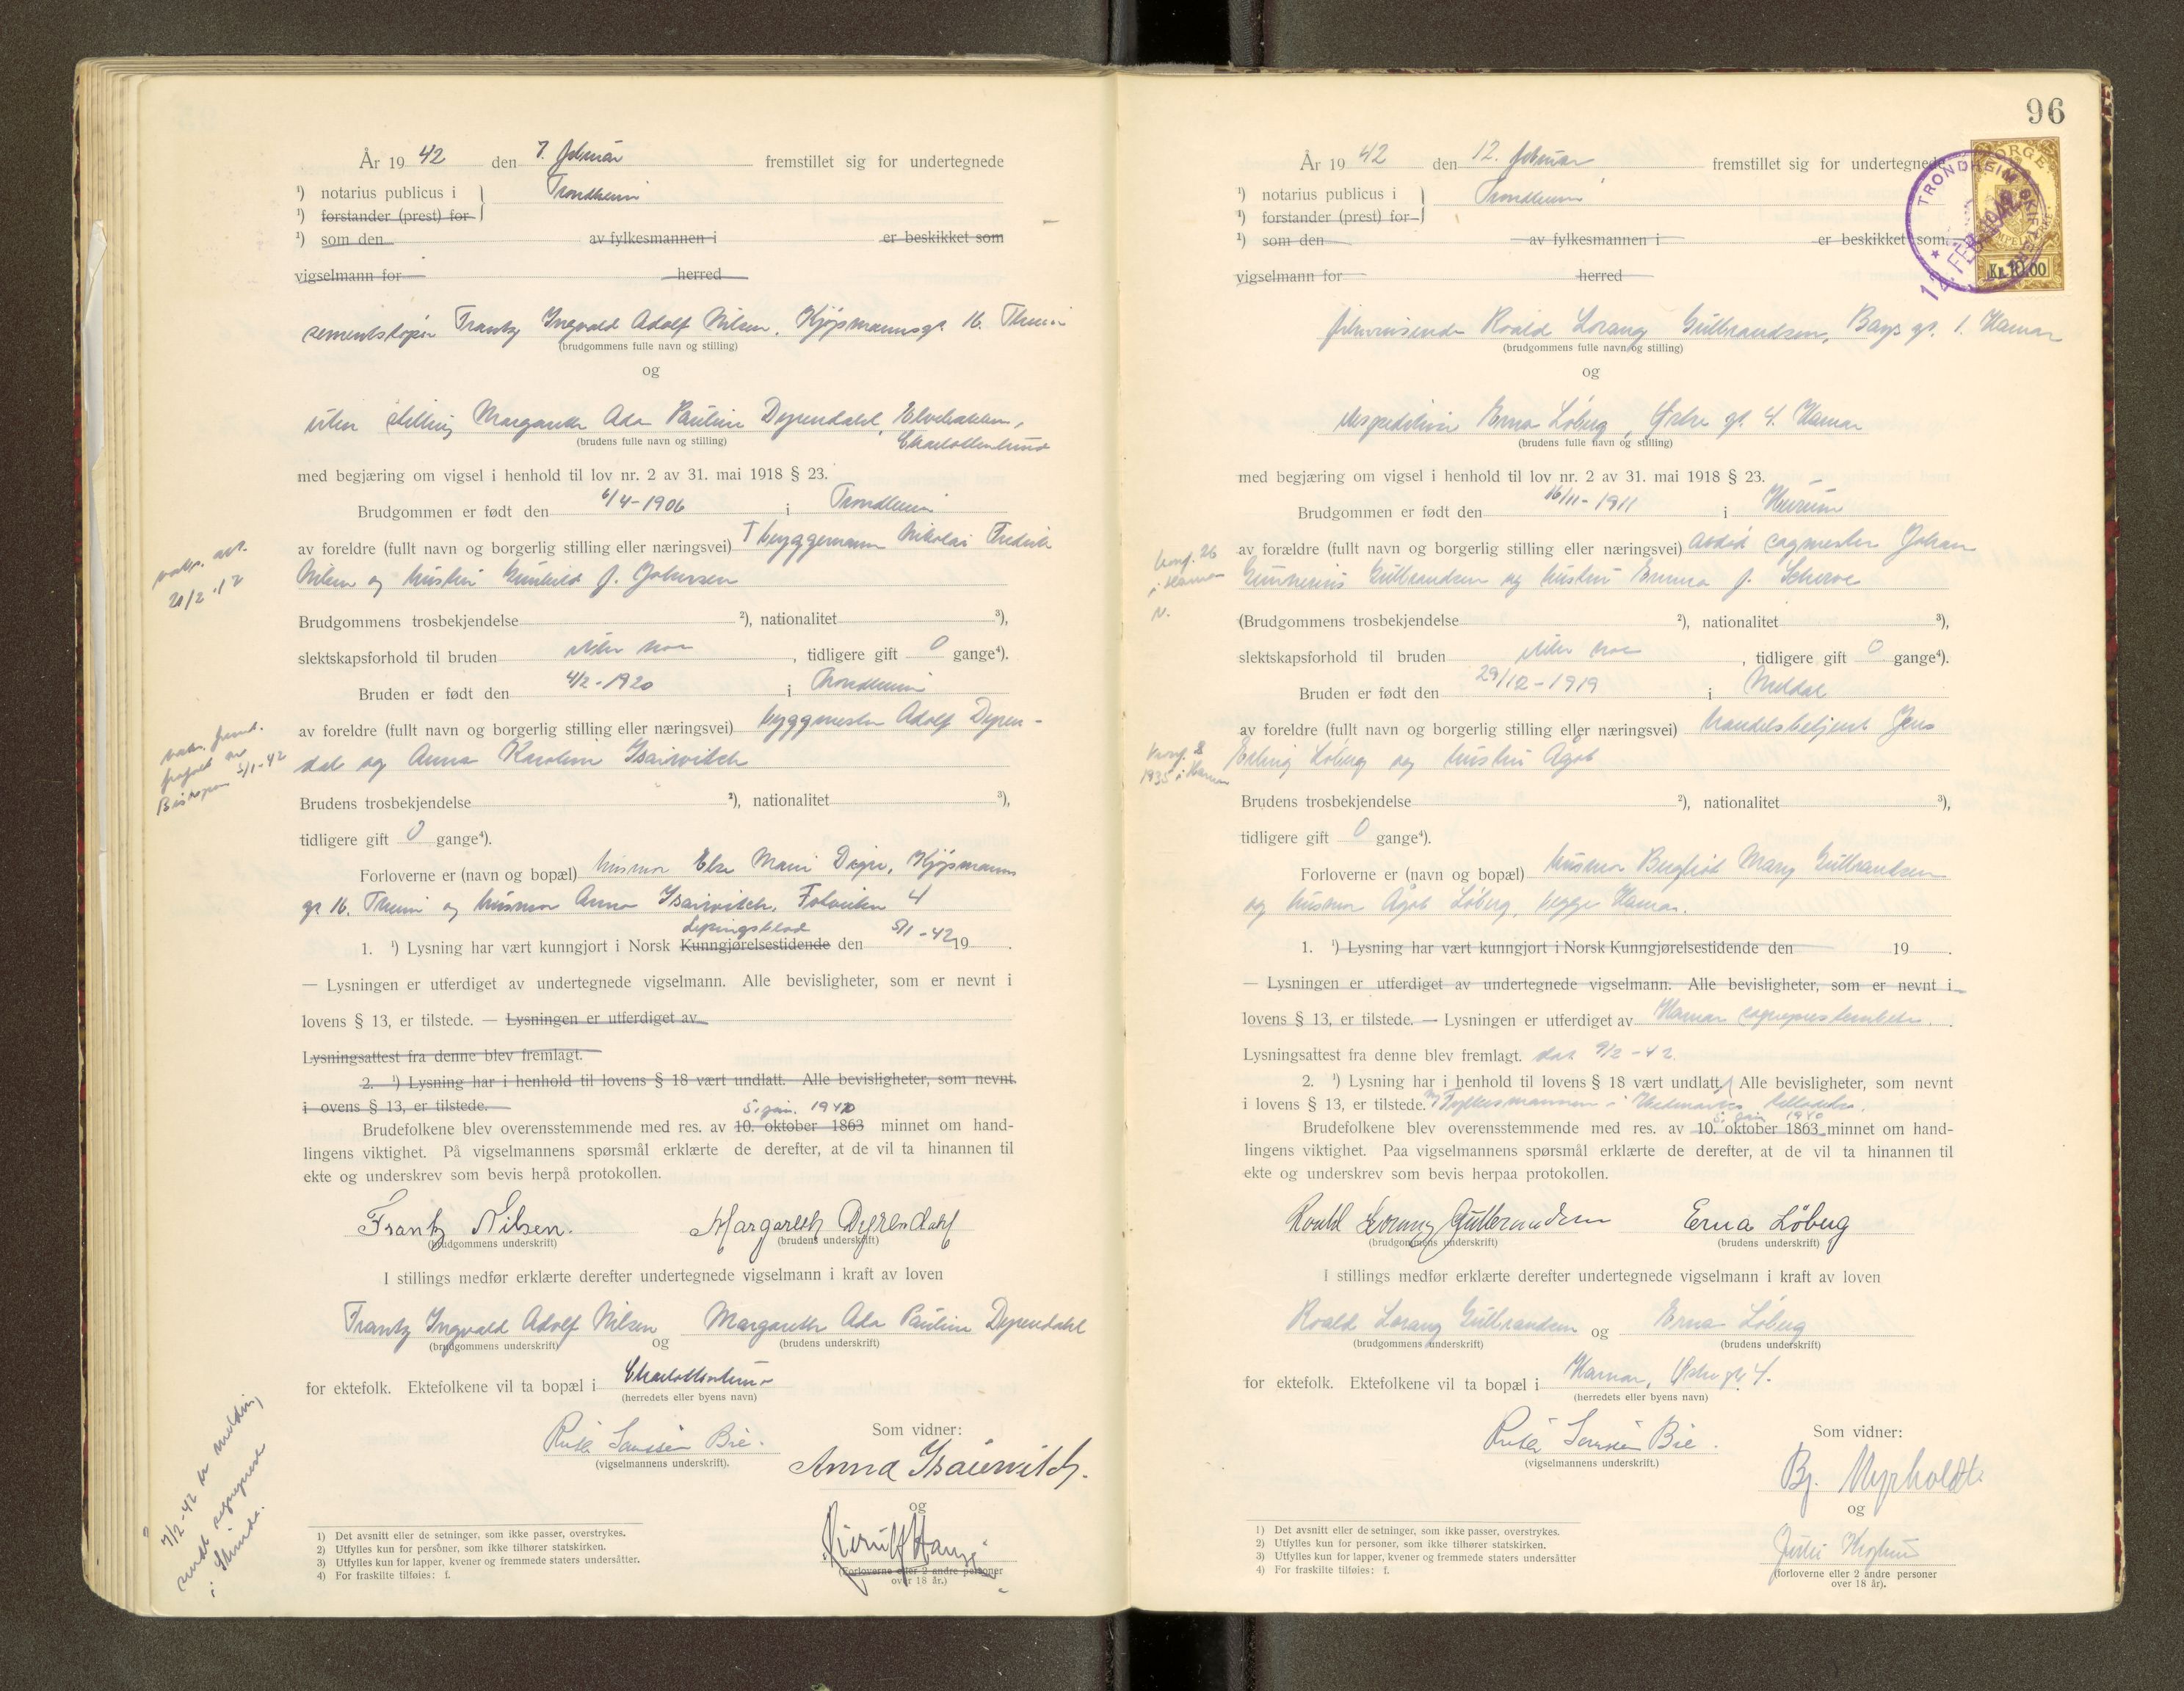 År 19 42 den 7. februar fremstillet sig for undertegnede
¹) notarius publicus i } Trondheim
¹) forstander (prest) for
¹) som den av fylkesmannen i er beskikket som
vigselmann for herred
sementstøper Frantz Ingvald Adolf Nilsen, Kjøpmannsgt. 16. Theim
(brudgommens fulle navn og stilling)
og
uten stilling Margareth Ada Pauline Dyrendahl, Elvebakken,
Charlottenlund
(brudens fulle navn og stilling)
med begjæring om vigsel i henhold til lov nr. 2 av 31. mai 1918 § 23.
Brudgommen er født den 6/4-1906 i Trondheim
av foreldre (fullt navn og borgerlig stilling eller næringsvei) bryggemann Nikolai Fredrik
Nilsen og hustru Gunhild f. Johnsen
vaks. att.
20/2
Brudgommens trosbekjendelse ²), nationalitet ³),
slektskapsforhold til bruden uten noe, tidligere gift 0 gange⁴).
Bruden er født den 4/2-1920 i Trondheim
av foreldre (fullt navn og borgerlig stilling eller næringsvei) byggmester Adolf Dyren-
dal og Anna Karoline Isaiwitch
5/1-42
Brudens trosbekjendelse ²), nationalitet ³),
tidligere gift 0 gange⁴).
Forloverne er (navn og bopæl) husmor Else Marie Digre, Kjøpmanns
gt 16. Theim og husmor Anna Isaiwitch, 4
Lysningsblad
1. ¹) Lysning har vært kunngjort i Norsk Kunngjørelsestidende den 5/1-42 19 .
— Lysningen er utferdiget av undertegnede vigselmann. Alle bevisligheter, som er nevnt i
lovens § 13, er tilstede. — Lysningen er utferdiget av
Lysningsattest fra denne blev fremlagt.
2. ¹) Lysning har i henhold til lovens § 18 vært undlatt. Alle bevisligheter, som nevnt
i ovens § 13, er tilstede.
5. jan. 1940
Brudefolkene blev overensstemmende med res. av 10. oktober 1863 minnet om hand-
lingens viktighet. På vigselmannens spørsmål erklærte de derefter, at de vil ta hinannen til
ekte og underskrev som bevis herpå protokollen.
Frantz Nilsen. Margareth Dyrendahl
(brudgommens underskrift) (brudens underskrift)
I stillings medfør erklærte derefter undertegnede vigselmann i kraft av loven
Frantz Ingvald Adolf Nilsen og Margareth Ada Pauline Dyrendahl
(brudgommens underskrift) (brudens underskrift)
for ektefolk. Ektefolkene vil ta bopæl i Charlottenlund
(herredets eller byens navn)
Bie.
(vigselmannens underskrift).
Som vidner:
Anna Isaiewitch.
og
(Forloverne eller 2 andre personer
over 18 år.)
7/2-42 er melding
sendt sogneprest
i Strinda.
1) Det avsnitt eller de setninger, som ikke passer, overstrykes.
2) Utfylles kun for persôner, som ikke tilhører statskirken.
3) Utfylles kun for lapper, kvener og fremmede staters undersåtter.
4) For fraskilte tilføies: f.
96
År 19 42 den 12. februar fremstillet sig for undertegnede
¹) notarius publicus i } Trondheim
¹) forstander (prest) for
¹) som den av fylkesmannen i er beskikket som
vigselmann for herred
NORGE
Kr. 10.00
TRONDHEIM SKIFTE
12. FEB. 1942
Roald Lorang Gulbrandsen, Bangs gt. 1. Hamar
(brudgommens fulle navn og stilling)
og
ekspeditrise Erna Løberg, Østre gt. 4. Hamar
(brudens fulle navn og stilling)
med begjæring om vigsel i henhold til lov nr. 2 av 31. mai 1918 § 23.
Brudgommen er født den 16/11-1911 i Hurum
av forældre (fullt navn og borgerlig stilling eller næringsvei) avdød sagmester Johan
Gulbrandsen og hustru Emma f.
konf. 26
i Hamar
Brudgommens trosbekjendelse ²), nationalitet ³),
slektskapsforhold til bruden uten noe, tidligere gift 0 gange⁴).
Bruden er født den 29/12-1919 i Meldal
av foreldre (fullt navn og borgerlig stilling eller næringsvei) handelsbetjent Jens
Erling Løberg og hustru Ågot
konf. 8
1935 i Hamar
Brudens trosbekjendelse ²), nationalitet ³),
tidligere gift 0 gange⁴).
Forloverne er (navn og bopæl) husmor Bergliot Mary Gulbrandsen
og husmor Ågot Løberg, begge Hamar.
1. ¹) Lysning har vært kunngjort i Norsk Kunngjørelsestidende den 19 .
— Lysningen er utferdiget av undertegnede vigselmann. Alle bevisligheter, som er nevnt i
lovens § 13, er tilstede. — Lysningen er utferdiget av Hamar sogneprestembete.
Lysningsattest fra denne blev fremlagt. dat 9/2-42.
2. ¹) Lysning har i henhold til lovens § 18 vært undlatt. Alle bevisligheter, som nevnt
i lovens § 13, er tilstede. Fylkesmannen i Hedmarks tillatelse.
5. jan 1940
Brudefolkene blev overensstemmende med res. av 10. oktober 1863 minnet om hand-
lingens viktighet. Paa vigselmannens spørsmål erklærte de derefter, at de vil ta hinannen til
ekte og underskrev som bevis herpaa protokollen.
Roald Lorang Gulbrandsen Erna Löberg
(brudgommens underskrift) (brudens underskrift)
I stillings medfør erklærte derefter undertegnede vigselmann i kraft av loven
Roald Lorang Gulbrandsen og Erna Løberg
(brudgommens underskrift) (brudens underskrift)
for ektefolk. Ektefolkene vil ta bopæl i Hamar, Østre gt. 4.
(herredets eller byens navn)
Bie.
(vigselmannens underskrift.)
Som vidner:
Bj. Myrholdt
og
(forloverne eller 2 andre personer
over 18 år).
1) Det avsnitt eller de setninger, som ikke passer, overstrykes.
2) Utfylles kun for personer, som ikke tilhører statskirken.
3) Utfylles kun for lapper, kvener og fremmede staters undersåtter
4) For fraskilte tilføies: f.